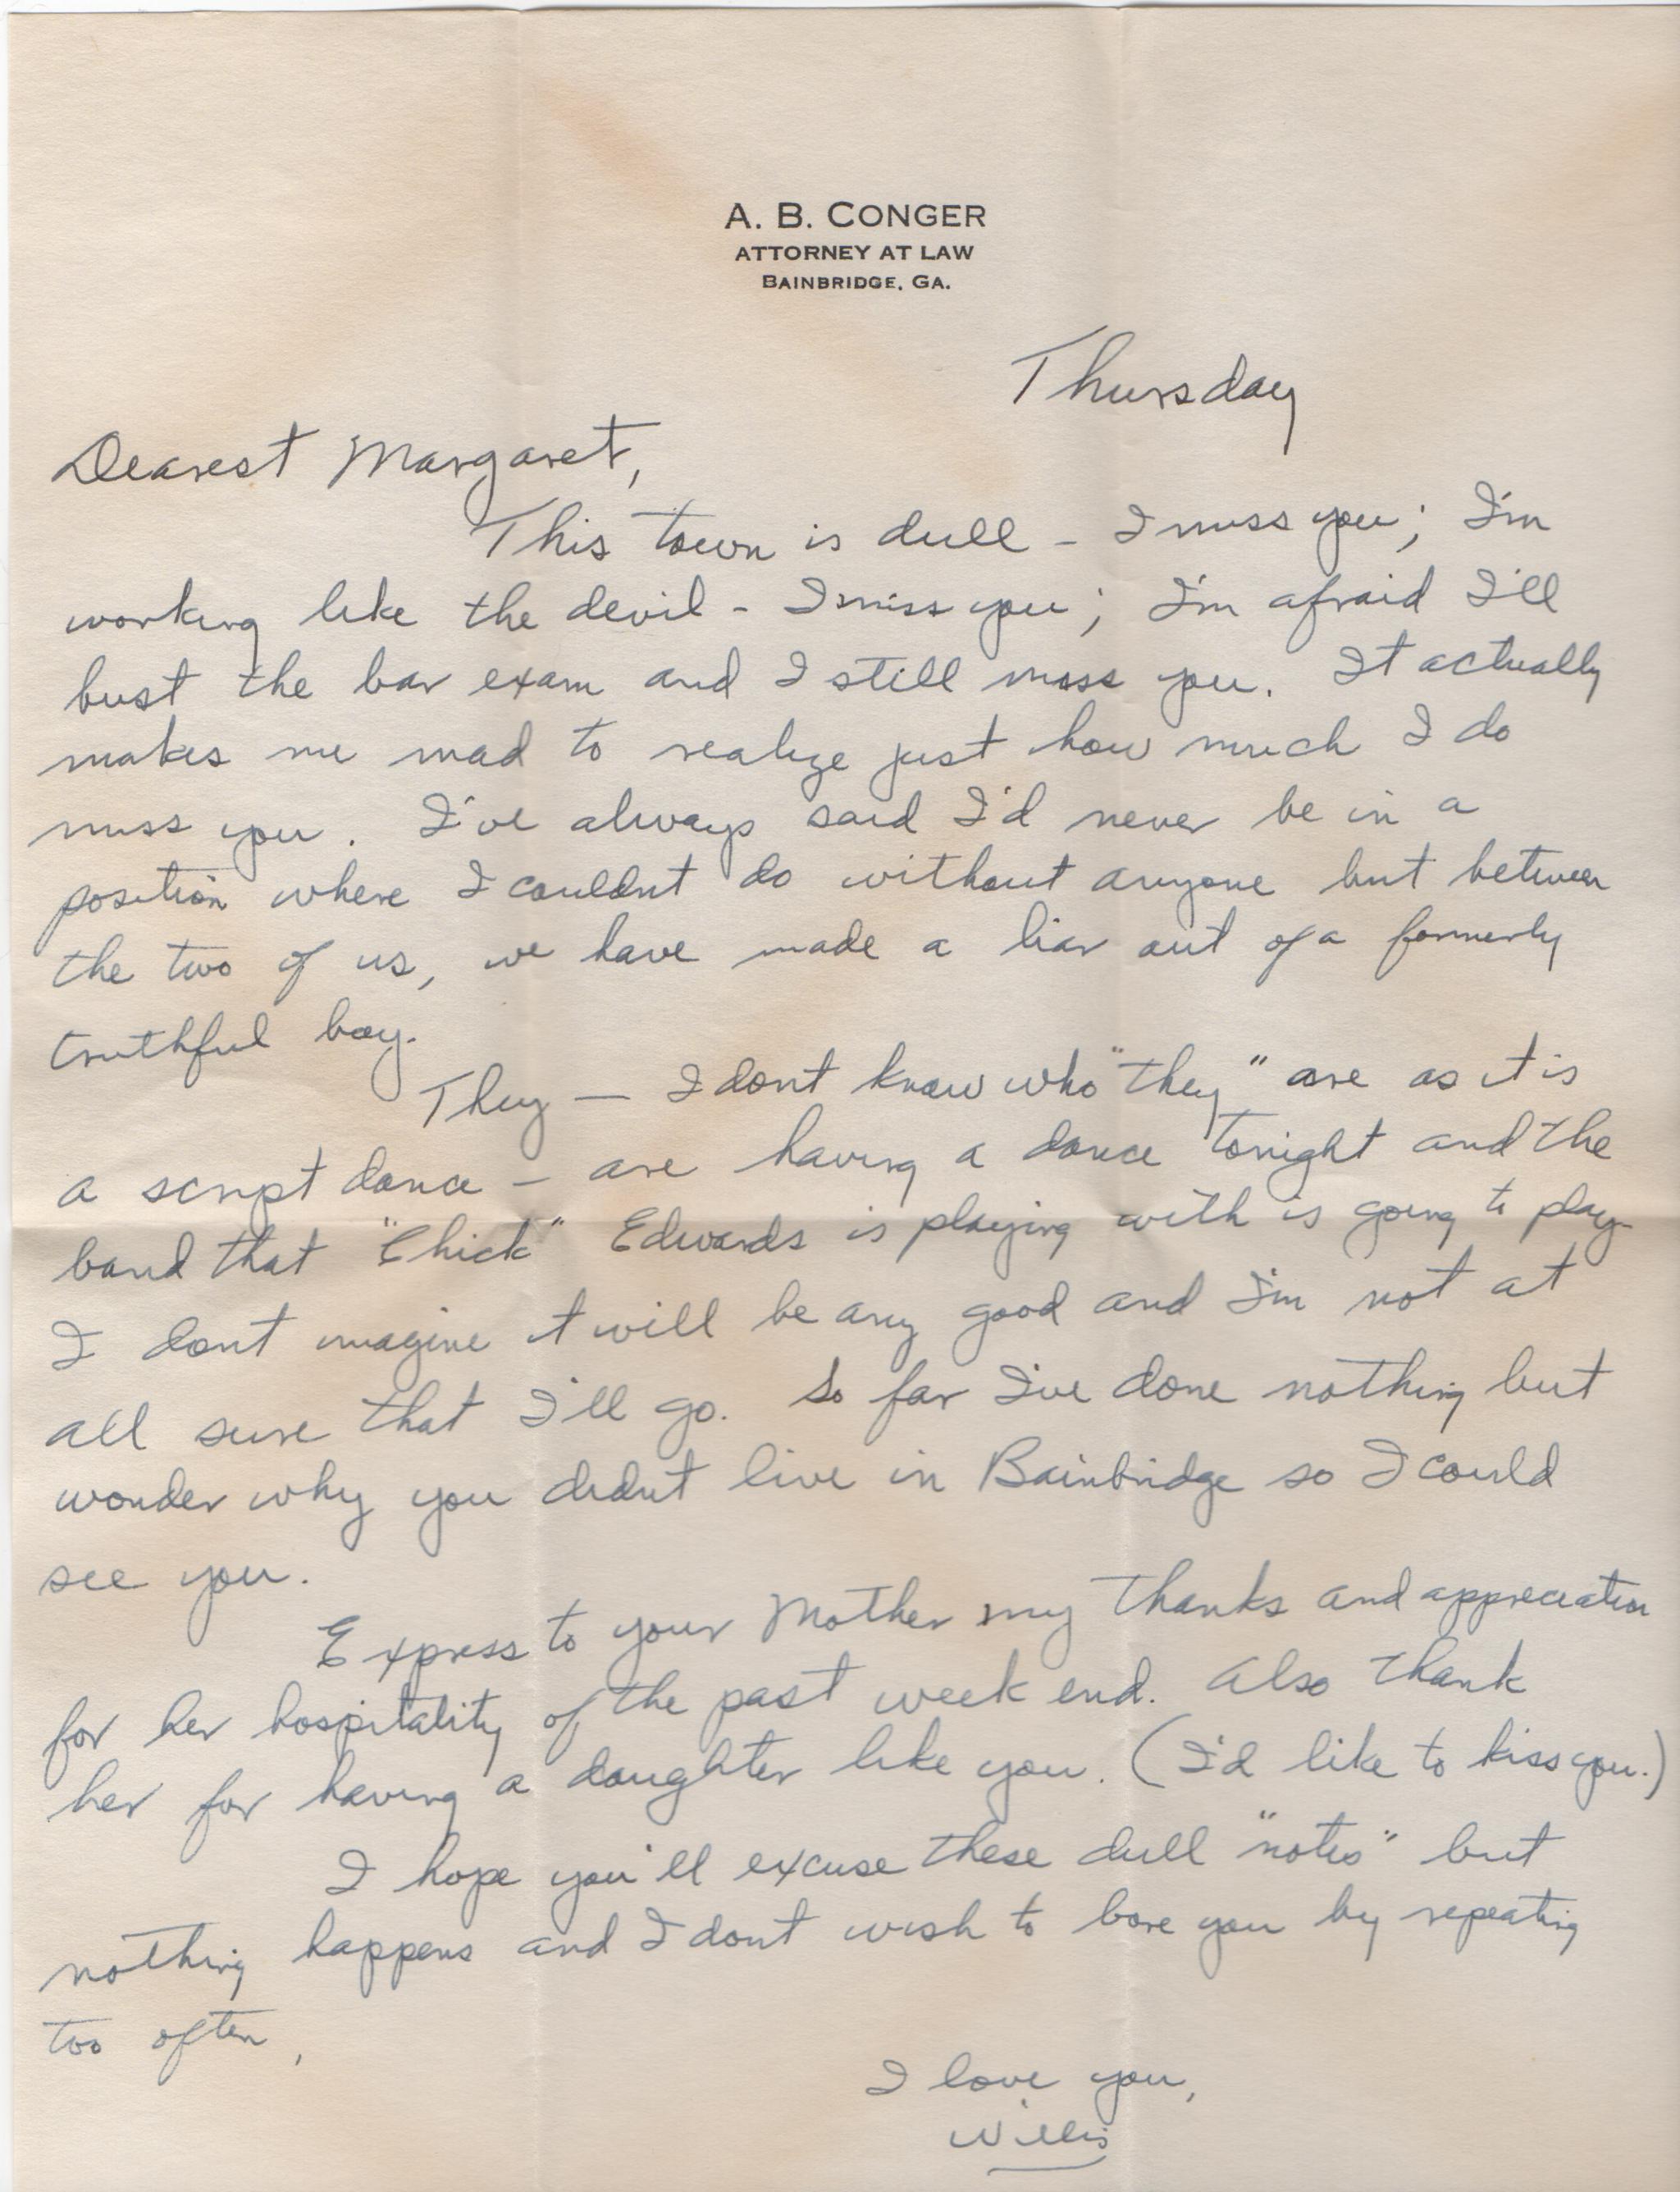 A. B. CONGER
ATTORNEY AT LAW
BAINBRIDGE, GA.
Thursday
Dearest Margaret,
This town is dull - I miss you; I'm
working like the devil - I miss you; I'm afraid I'll
bust the bar exam and I still miss you. It actually
makes me mad to realize just how much I do
miss you. I've always said I'd never be in a
position where I couldnt do without anyone but between
the two of us, we have made a liar out of a formerly
truthful boy.
They — I dont know who "they" are as it is
a script dance - are having a dance tonight and the
band that "Chick" Edwards is playing with is going to play.
I dont imagine it will be any good and I'm not at
all sure that I'll go. So far I've done nothing but
wonder why you didnt live in Bainbridge so I could
see you.
Express to your Mother my thanks and appreciation
for her hospitality of the past week end. Also thank
her for having a daughter like you. (I'd like to kiss you.)
I hope you'll excuse these dull "notes" but
nothing happens and I dont wish to bore you by repeating
too often,
I love you,
Willis